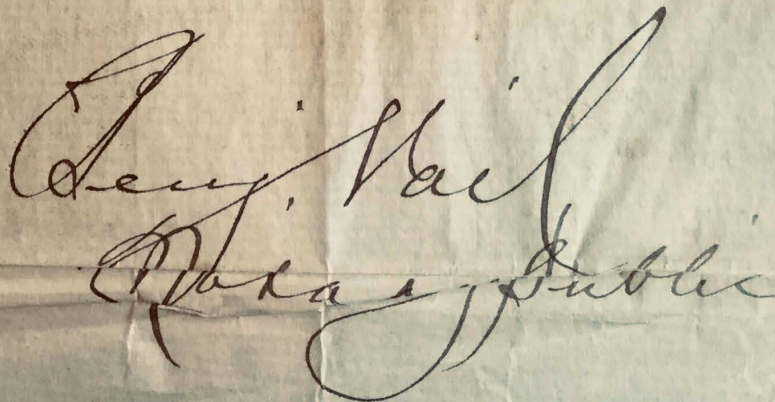 Benj. Vail
Notary Public